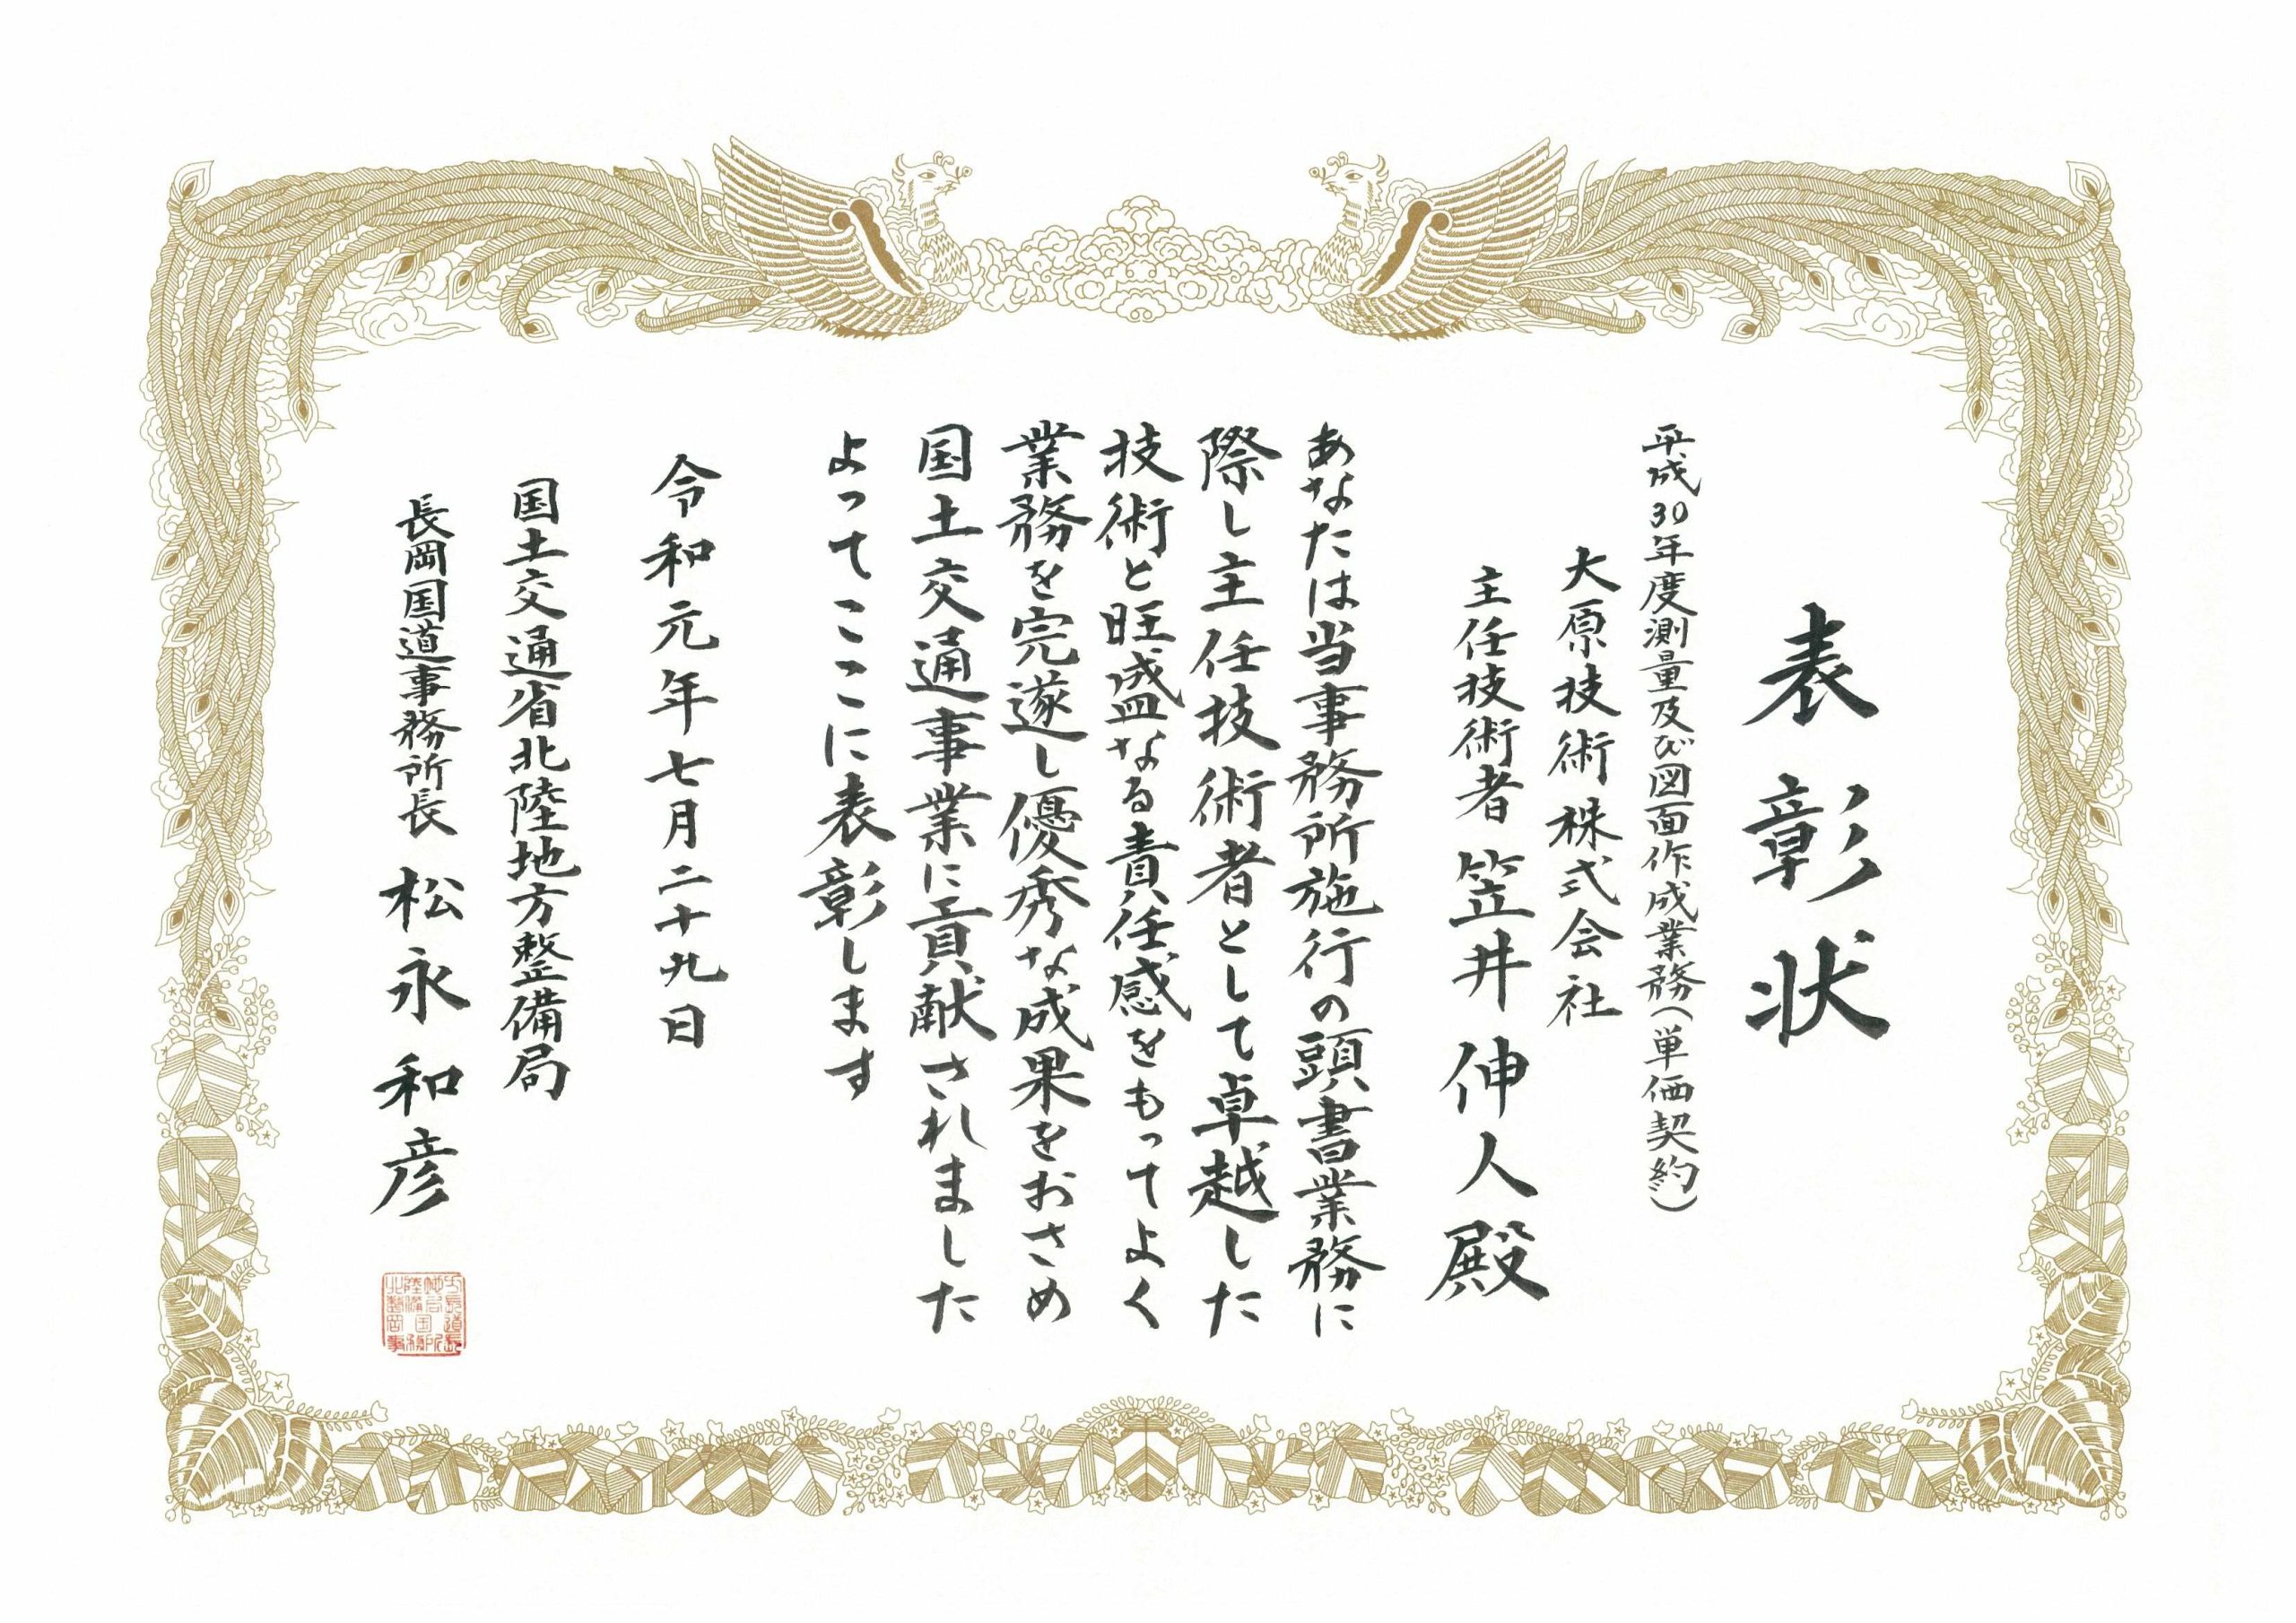 表彰状
平成30年度測量及び図面作成業務(単価契約)
大原技術株式会社
主任技術者 笠井伸人殿
あなたは当事務所施行の頭書業務に
際し主任技術者として卓越した
技術と旺盛なる責任感をもってよく
業務を完遂し優秀な成果をおさめ
国土交通事業に貢献されました
よってここに表彰します
令和元年七月二十九日
国土交通省北陸地方整備局
長岡国道事務所長 松永和彦